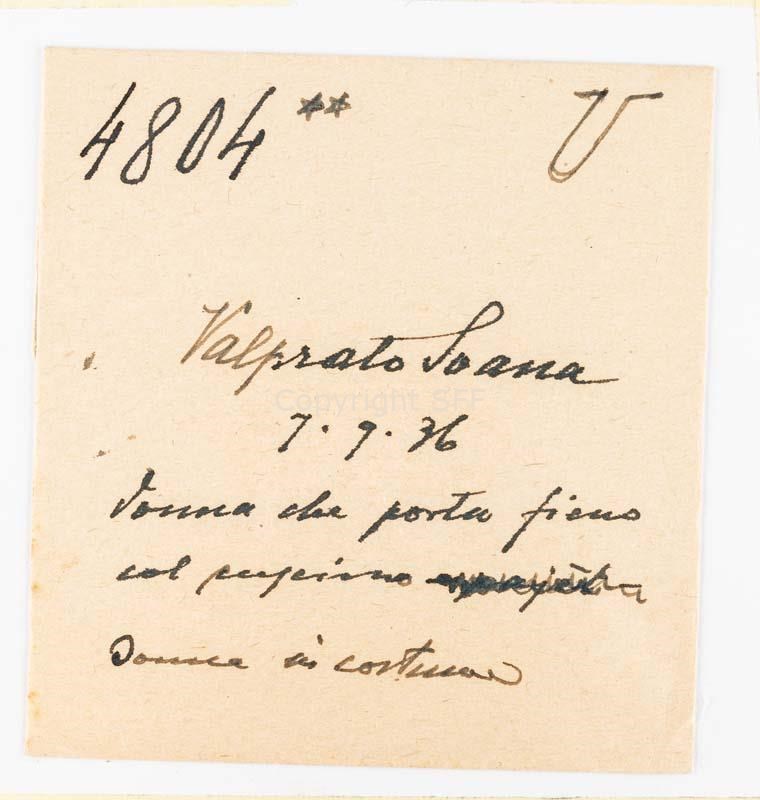 4804** U
Valprato Soana
Copyright SFF
7.9.36
donna che porta fieno
col
Donna in costume